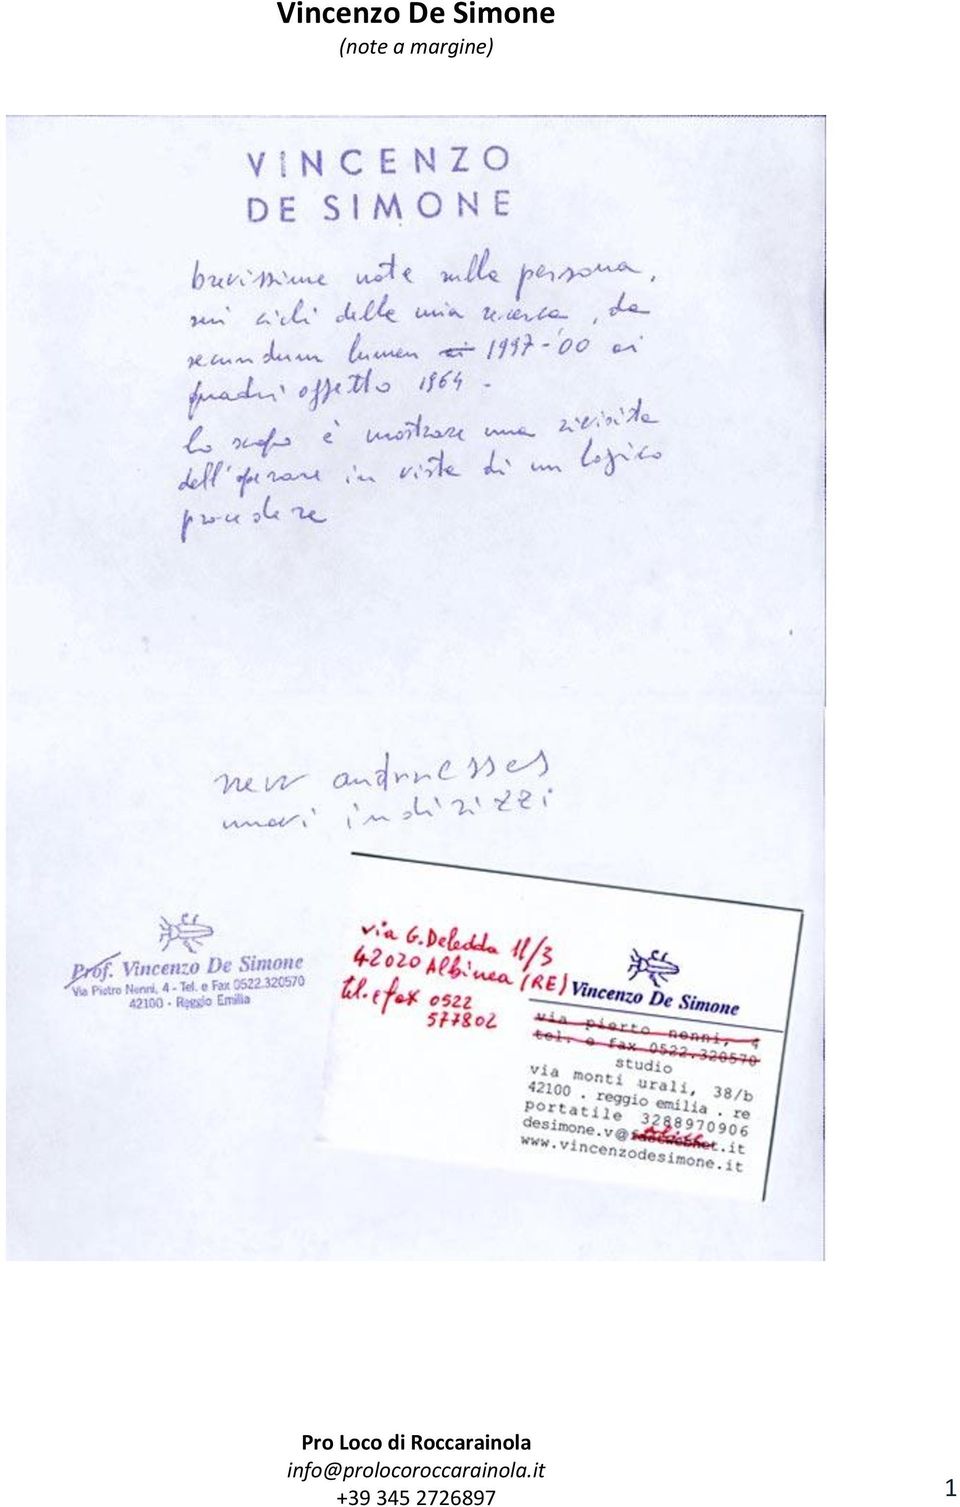 Vincenzo De Simone
(note a margine)
VINCENZO
DE SIMONE
brevissime note sulla persona,
sui cicli della mia ricerca, da
secundum lumen ai 1997-'00 ai
quadri oggetto 1964 -
lo scopo è mostrare una rivisita
dell'operare in vista di un logico
procedere
new andrnesses
nuovi indirizzi
Prof. Vincenzo De Simone
Via Pietro Nenni, 4 - Tel. e Fax 0522.320570
42100 - Reggio Emilia
via G. Deledda 11/3
42020 Albinea (RE)
tel. e fax 0522
577802
Vincenzo De Simone
via pierto nenni, 4
tel. e fax 0522.320570
studio
via monti urali, 38/b
42100 . reggio emilia . re
portatile 3288970906
desimone.v@ .it
www.vincenzodesimone.it
Pro Loco di Roccarainola
info@prolocoroccarainola.it
+39 345 2726897
1